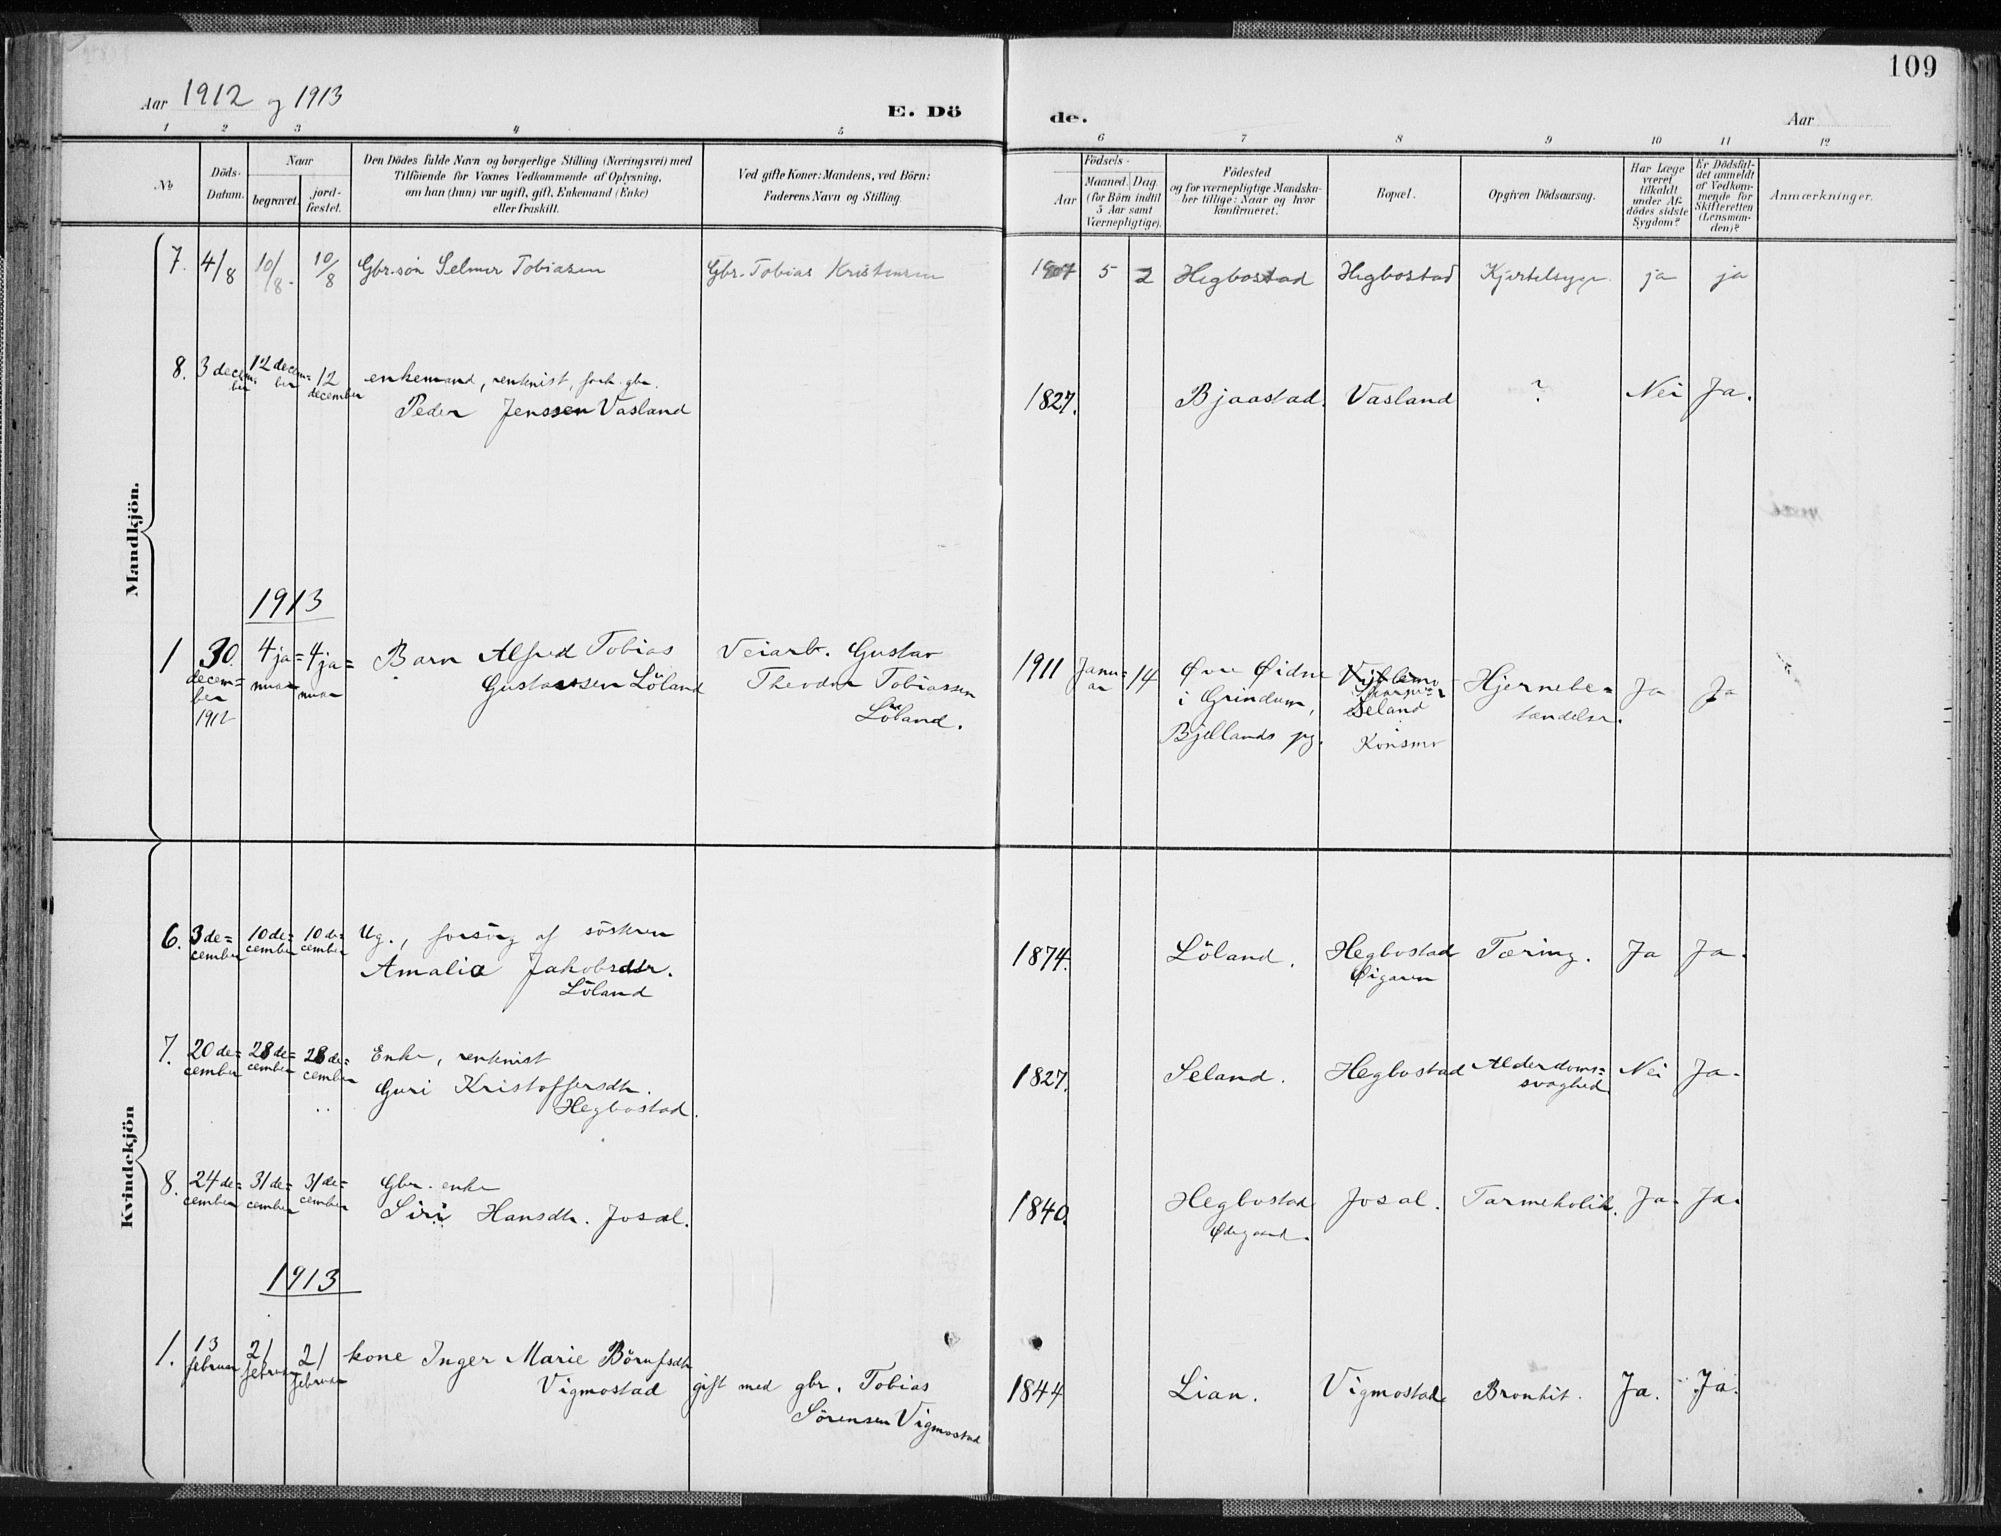 109
Aar 1912 og 1913
E. Döde.
Aar
1 2 3 4 5 6 7 8 9 10 11 12
No
Döds-
Datum.
Naar
begravet.
jord-
fæstet.
Den Dödes fulde Navn og borgerlige Stilling (Næringsvei) med
Tilföiende for Voxnes Vedkommende af Oplysning,
om han (hun) var ugift, gift, Enkemand (Enke)
eller fraskilt.
Ved gifte Koner: Mandens, ved Börn:
Faderens Navn og Stilling.
Födsels-
Aar
Maaned. Dag.
(for Börn indtil
5 Aar samt
Værnepligtige).
Födested
og for værnepligtige Mandska-
ber tillige: Naar og hvor
konfirmeret.
Bopæl.
Opgiven Dödsaarsag.
Har Læge
været
tilkaldt
under Af-
dödes sidste
Sygdom?
Er Dödsfal-
det anmeldt
af Vedkom-
mende for
Skifteretten
(Lensman-
den)?
Anmærkninger.
Mandkjön.
7. 4/8 10/8. 10/8 Gbr.sön Selmer Tobiasen Gbr. Tobias Kristensen 1907 5 2 Hegbostad Hegbostad Kjertelsyge. ja ja
8. 3 decem=
ber
12 decem=
ber
12
december
enkemand, rentnist, forh. gbr.
Peder Jenssen Vasland
1827. Bjaastad. Vasland ? Nei Ja.
1913
1 30.
decem=
ber
1912
4 ja=
nuar
4 ja=
nuar
Barn Alfred Tobias
Gustavsen Löland
Veiarb. Gustav
Theodor Tobiassen
Löland.
1911 Janu=
ar
14
Øvre Øidne
i Grindum,
Bjellands pg.
Seland
Konsmo
Hjernebe=
tændelse.
Ja Ja
Kvindekjön
6. 3 de=
cember
10 de=
cember
10 de=
cember
Ug., forsörg af söskren
Amalia Jakobsdtr.
Löland
1874. Löland. Hegbostad
Øigaren
Tæring. Ja Ja.
7. 20 de=
cember
28 de=
cember
28 de=
cember
Enke, rentnist
Guri Kristoffersdtr.
Hegbostad.
1827. Seland. Hegbostad Alderdoms=
svaghed.
Nei Ja.
8. 24 de=
cember
31 de=
cember
31 de=
cember
Gbr. enke
Siri Hansdtr. Josal.
1840. Hegbostad
Ødegaard.
Josal. Tarmekolik. Ja. Ja.
1913
1. 13
februar
21
februar
21
februar
kone Inger Marie Börufsdtr
Vigmostad
gift med gbr. Tobias
Sörensen Vigmostad
1844 Lian. Vigmostad Bronkit. Ja. Ja.